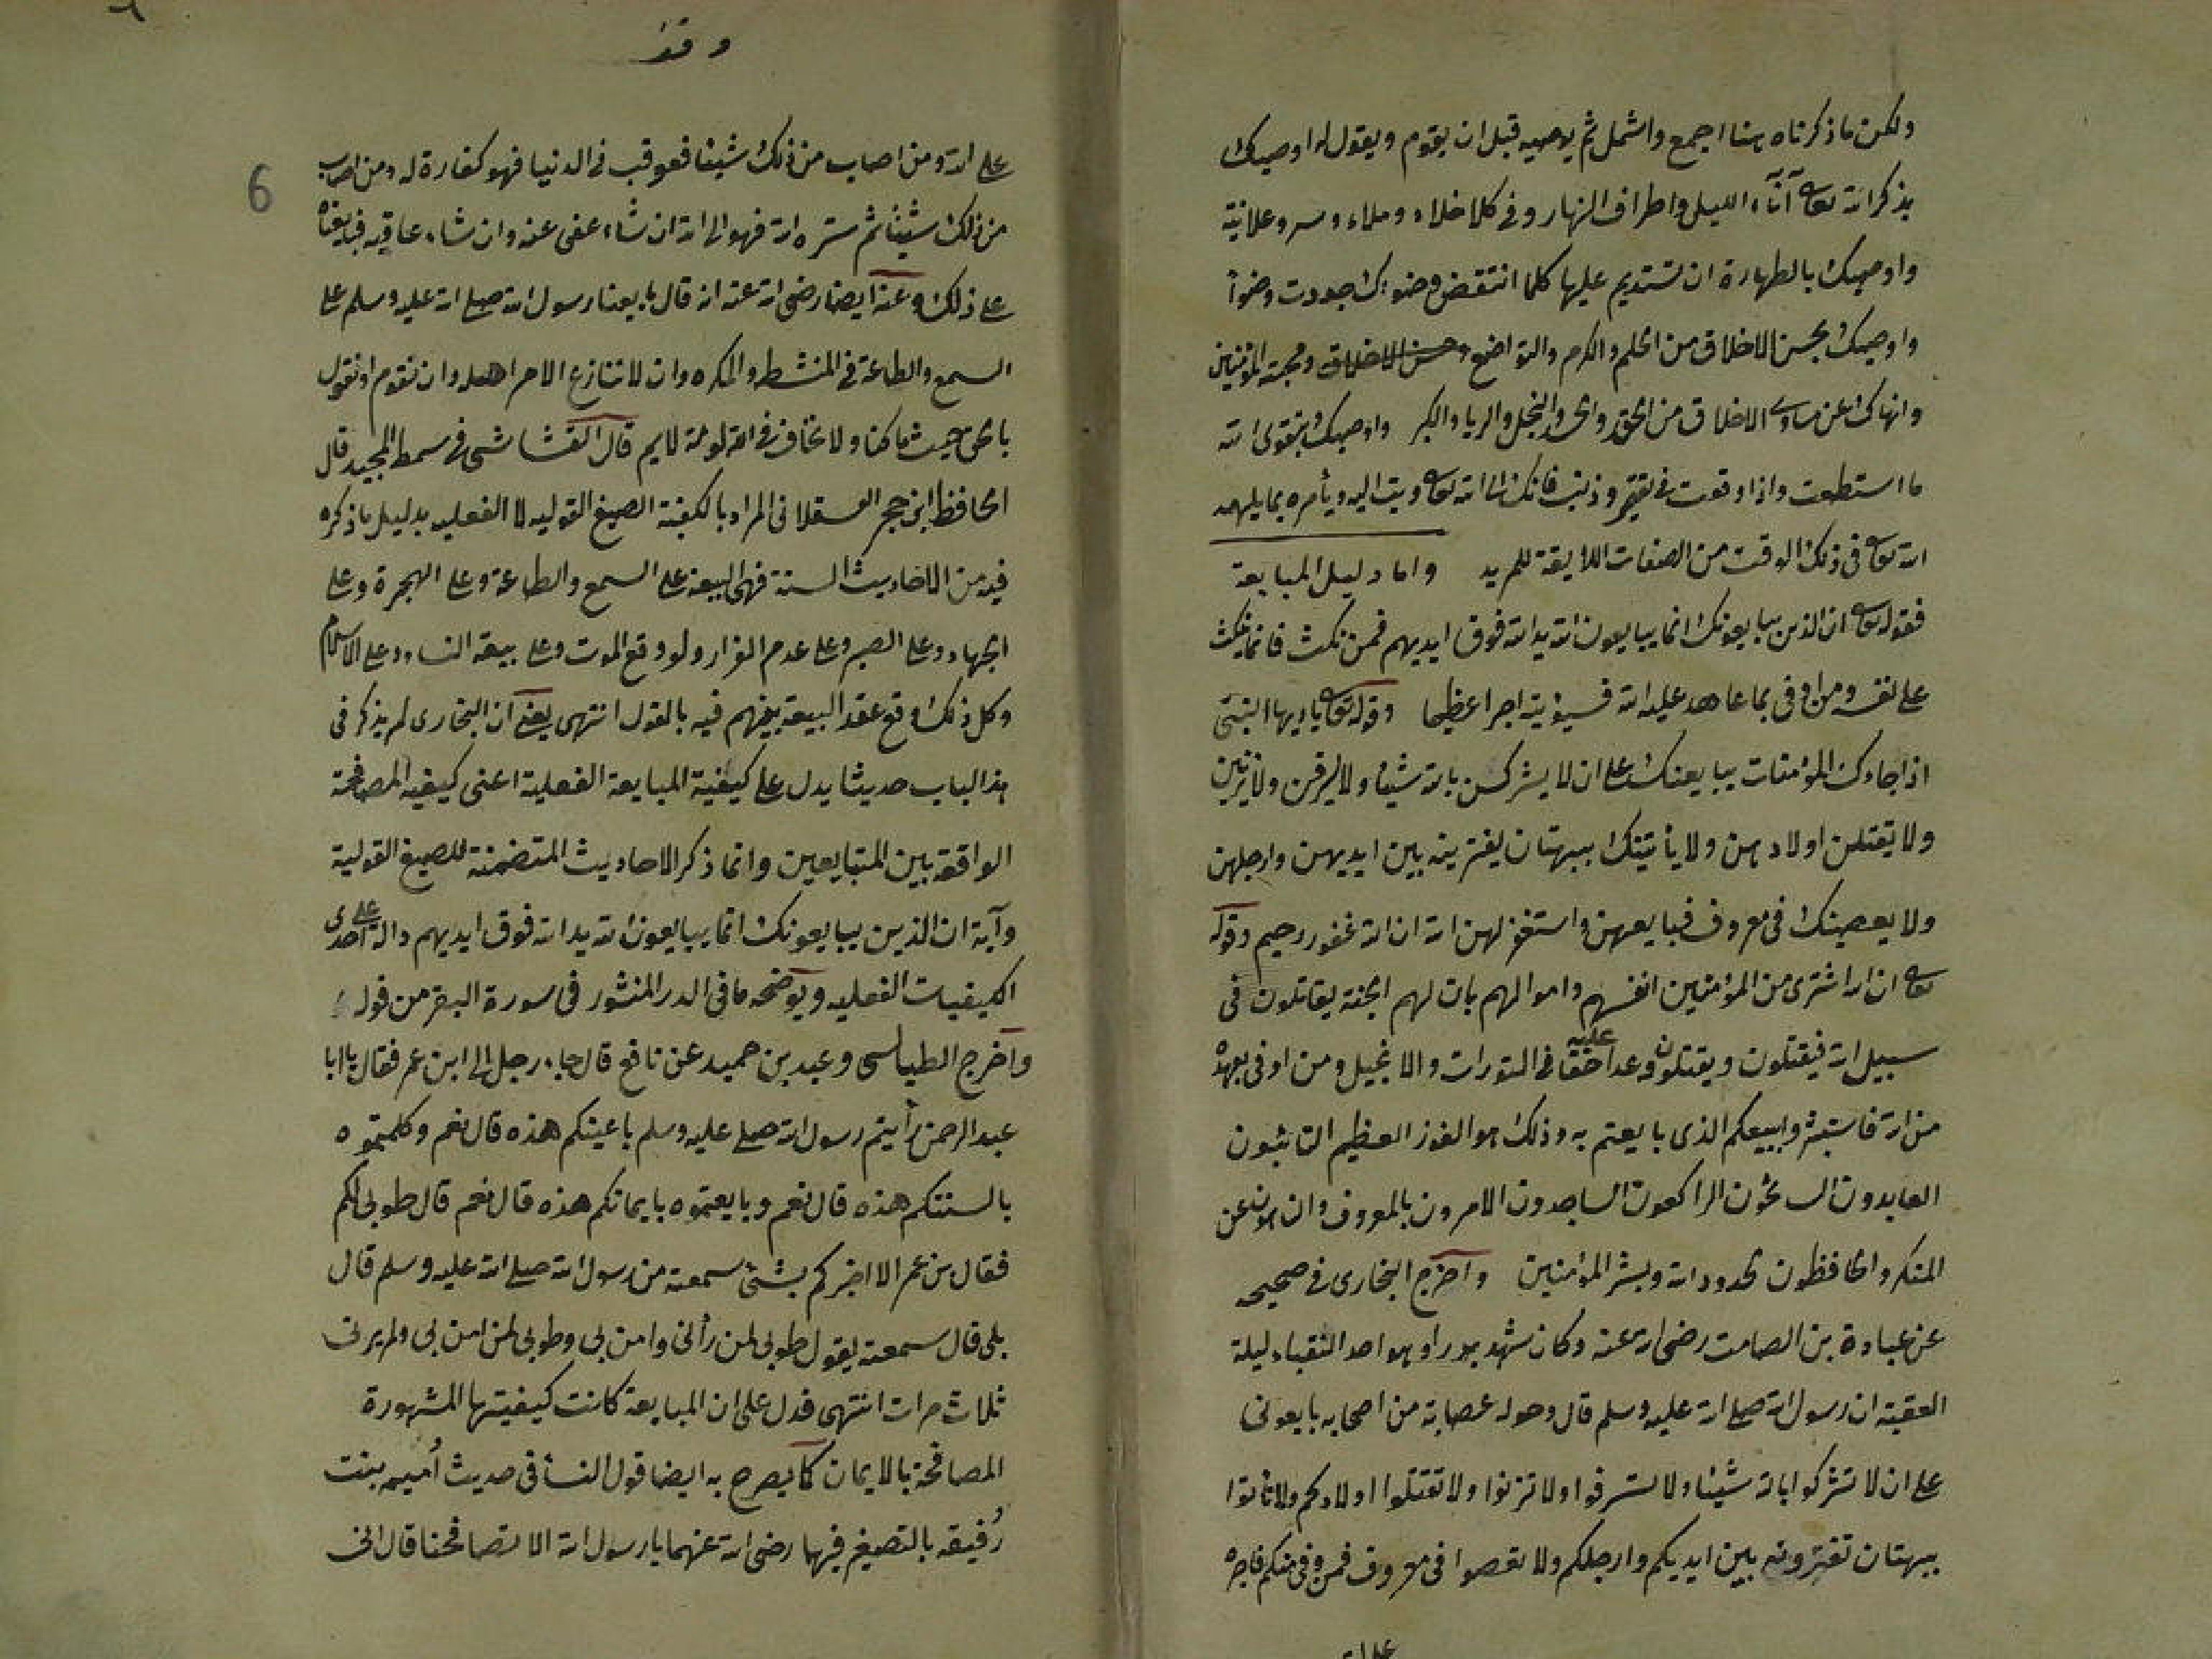 ولكن ما ذكرناه هنا اجمع واشمل ثم يوصيه قبل ان يقوم ويقول له اوصيك
بذكر الله تعالى آناء الليل واطراف النهار وفي كل خلاء وملاء وسر وعلانية
واوصيك بالطهارة ان تستديم عليها كلما انتقض وضوءك جددت وضوأ
واوصيك بحسن الاخلاق من الحلم والكرم والتواضع وحسن الاخلاق ومحبة المؤمنين
وانهاك عن مساوى الاخلاق من الحقد والحسد والبخل والريا والكبر واوصيك بتقوى الله
ما استطعت واذا وقعت في تقصير وذنب فانك الى الله تعالى وتب اليه ويأمره بما يلهمه
الله تعالى في ذلك الوقت من الصفات اللايقة للمريد واما دليل المبايعة
فقوله تعالى ان الذين يبايعونك انما يبايعون الله يد الله فوق ايديهم فمن نكث فانما ينكث
على نفسه ومن اوفى بما عاهد عليه الله فسيؤتيه اجرا عظيما وقوله تعالى يا ايها النبي
اذا جاءك المؤمنات يبايعنك على ان لا يشركن بالله شيئا ولا يسرقن ولا يزنين
ولا يقتلن اولادهن ولا يأتينك ببهتان يفترينه بين ايديهن وارجلهن
ولا يعصينك في معروف فبايعهن واستغفر لهن الله ان الله غفور رحيم وقوله
تعالى ان الله اشترى من المؤمنين انفسهم واموالهم بان لهم الجنة يقاتلون في
سبيل الله فيقتلون ويقتلون وعدا عليه حقا في التورات والانجيل ومن اوفى بعهده
من الله فاستبشروا ببيعكم الذي بايعتم به وذلك هو الفوز العظيم التائبون
العابدون السائحون الراكعون الساجدون الامرون بالمعروف والناهون عن
المنكر والحافظون لحدود الله وبشر المؤمنين واخرج البخارى في صحيحه
عن عبادة بن الصامت رضى الله عنه وكان شهد بدرا وهو احد النقباء ليلة
العقبة ان رسول الله صلى الله عليه وسلم قال وحوله عصابة من اصحابه بايعوني
على ان لا تشركوا بالله شيئا ولا تسرقوا ولا تزنوا ولا تقتلوا اولادكم ولا تأتوا
ببهتان تفترونه بين ايديكم وارجلكم ولا تعصوا في معروف فمن وفى منكم فاجره
على الله
وقف
على الله ومن اصاب من ذلك شيئا فعوقب في الدنيا فهو كفارة له ومن اصاب
من ذلك شيئا ثم ستره الله فهو الى الله ان شاء عفى عنه وان شاء عاقبه فبايعناه
على ذلك وعنه ايضا رضى الله عنه انه قال بايعنا رسول الله صلى الله عليه وسلم على
السمع والطاعة في المنشط والمكره وان لا ننازع الامر اهله وان نقوم او نقول
بالحق حيث ما كنا ولا نخاف في الله لومة لايم قال القشاشى في سمط المجيد قال
الحافظ ابن حجر العسقلانى المراد بالكيفية الصيغ القوليه لا الفعليه بدليل ما ذكره
فيه من الاحاديث الستة فهى البيعة على السمع والطاعة وعلى الهجرة وعلى
الجهاد وعلى الصبر وعلى عدم الفرار ولو وقع الموت وعلى بيعة النساء وعلى الاسلام
وكل ذلك وقع عقد البيعة بينهم فيه بالقول انتهى يعنى ان البخارى لم يذكر فى
هذا الباب حديثا يدل على كيفية المبايعة الفعلية اعنى كيفية المصافحة
الواقعة بين المتبايعين وانما ذكر الاحاديث المتضمنة للصيغ القولية
وآية ان الذين يبايعونك انما يبايعون الله يد الله فوق ايديهم دالة على احدى
الكيفيات الفعليه ويوضحه ما فى الدر المنثور فى سورة البقرة من قوله
واخرج الطيالسى وعبد بن حميد عن نافع قال جاء رجل الى ابن عمر فقال يا ابا
عبد الرحمن رأيتم رسول الله صلى عليه وسلم باعينكم هذه قال نعم وكلمتموه
بالسنتكم هذه قال نعم وبايعتموه بايمانكم هذه قال نعم قال طوبى لكم
فقال بن عمر الا اخبركم بشئ سمعته من رسول الله صلى الله عليه وسلم قال
بلى قال سمعته يقول طوبى لمن رأنى وامن بى وطوبى لمن امن بى ولم يرنى
ثلاث مرات انتهى فدل على ان المبايعة كانت كيفيتها المشهورة
المصافحة بالايمان كما يصرح به ايضا قول النساء فى حديث أميمه بنت
رُقيقه بالتصغير فيهما رضى الله عنهما يا رسول الله الا تصافحنا قال انى
6